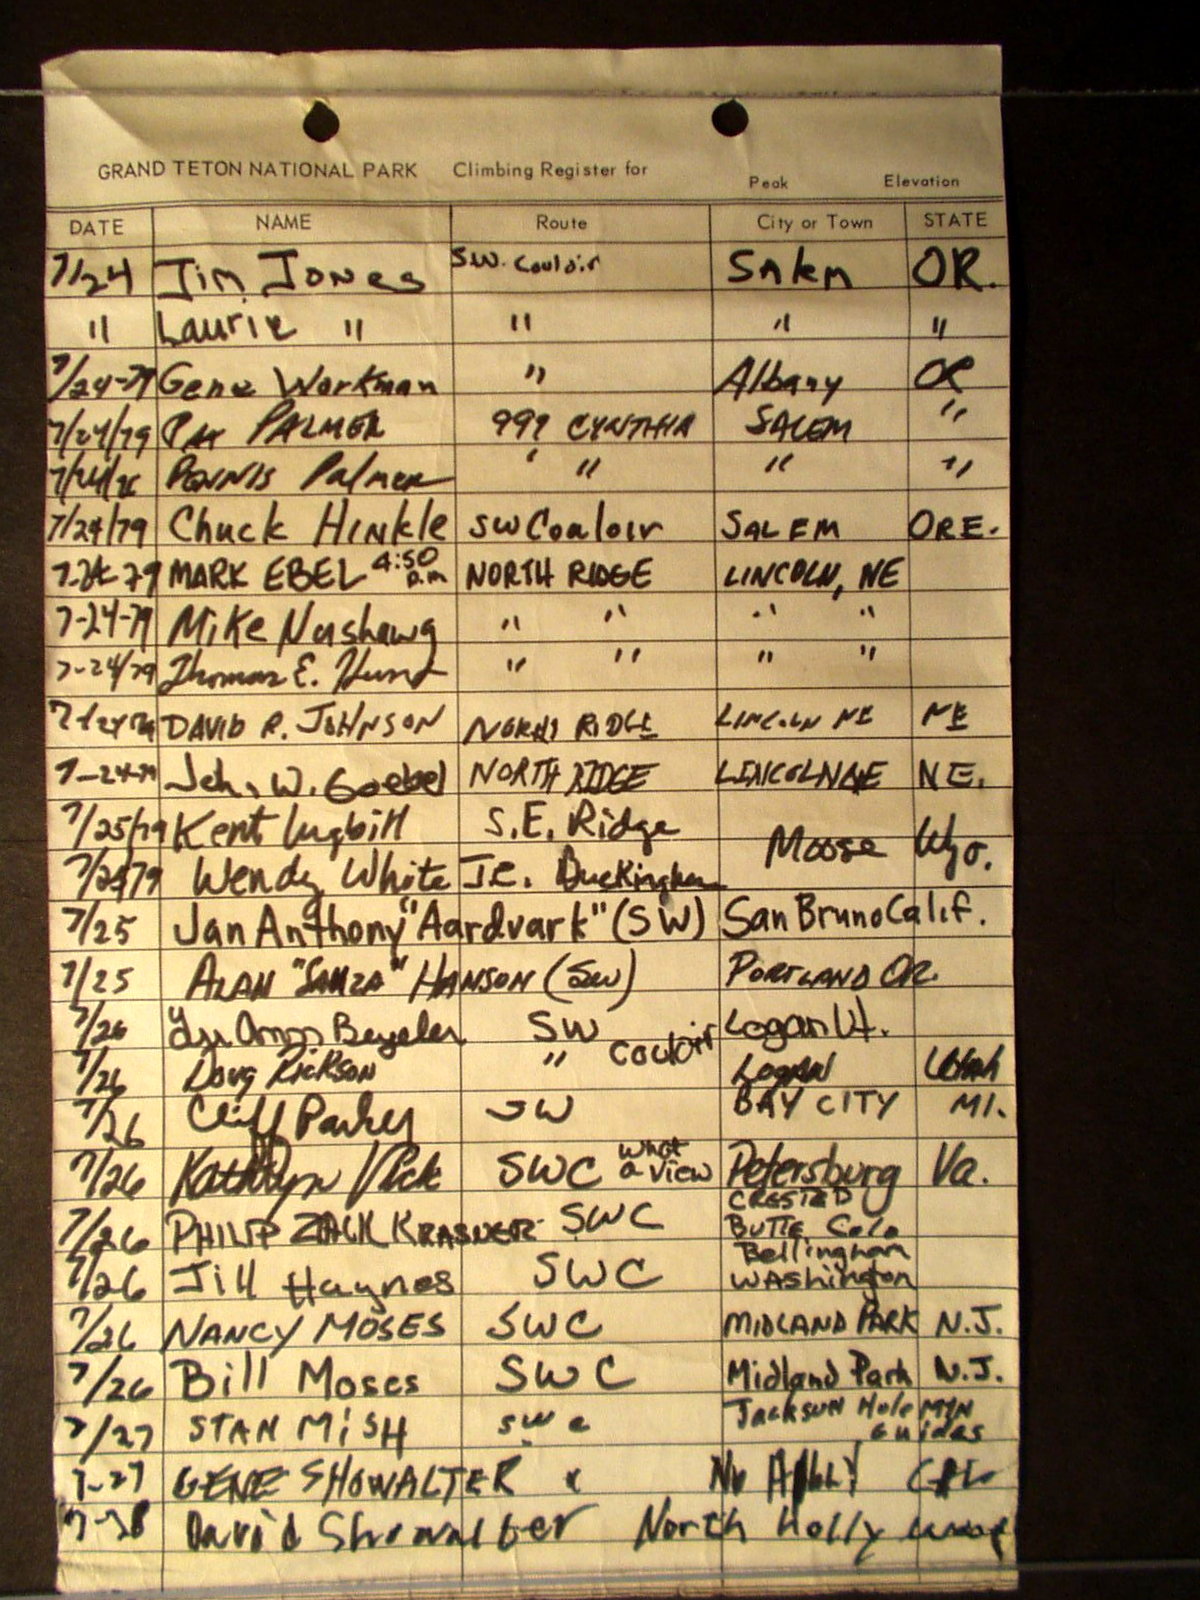 GRAND TETON NATIONAL PARK Climbing Register for Peak Elevation
DATE NAME Route City or Town STATE
7/24 Jim Jones S.W. Couloir Salem OR.
" Laurie " " " "
7/24-79 Gene Workman " Albany OR
7/24/79 Pat PALMER 999 CYNTHIA SALEM "
Dennis Palmer " " " "
7/24/79 Chuck Hinkle SW Coaloir SALEM ORE.
7-24-79 MARK EBEL 4:50 p.m NORTH RIDGE LINCOLN, NE
7-24-79 Mike " " " "
7-24/79 Thomas E. " " " "
7/24/79 DAVID R. JOHNSON NORTH RIDGE LINCOLN NE NE
7-24-79 John W. Goebel NORTH RIDGE LINCOLN NE NE.
7/25/79 Kent Lugbill S.E. Ridge Moose Wyo.
Wendy White Buckingham
7/25 Jan Anthony "Aardvark" (SW) San Bruno Calif.
7/25 ALAN HANSON (SW) PORTLAND OR.
7/26 Beyeler SW Couloir Logan Ut.
7/26 Doug Rickson " LOGAN Utah
7/26 Cliff Parkey SW BAY CITY MI.
7/26 Kathryn Vick SWC what a view Petersburg Va.
7/26 PHILIP ZACK KRASNER SWC CRESTED BUTTE Colo
7/26 Jill Haynes SWC Bellingham Washington
7/26 NANCY MOSES SWC MIDLAND PARK N.J.
7/26 Bill Moses SWC Midland Park N.J.
7/27 STAN MISH swc JACKSON Hole MTN Guides
7-27 GENE SHOWALTER
7-28 David Showalter North Hollywood